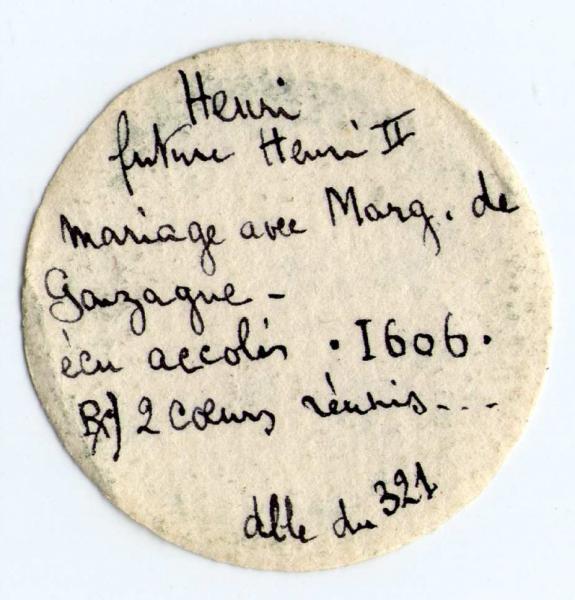 Henri
future Henri II
mariage avec Marg. de
Gonzague -
écu accolés . 1606.
R/ 2 coeurs réunis...
dble du 321